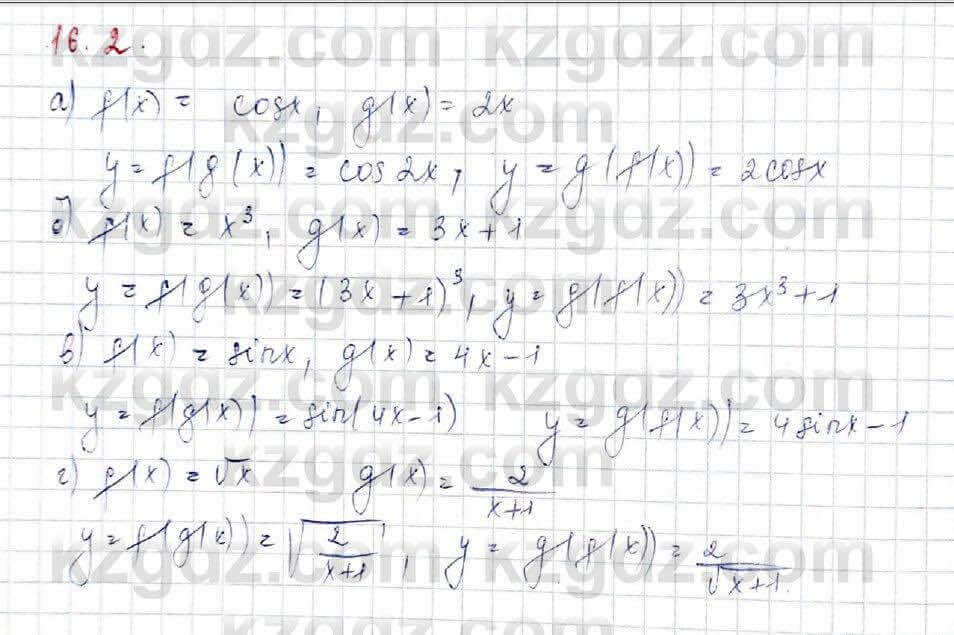 16.2.
а) f(x) = cosx, g(x) = 2x
y = f(g(x)) = cos2x, y = g(f(x)) = 2cosx
б) f(x) = x³, g(x) = 3x+1
y = f(g(x)) = (3x+1)³, y = g(f(x)) = 3x³+1
в) f(x) = sinx, g(x) = 4x-1
y = f(g(x)) = sin(4x-1) y = g(f(x)) = 4sinx-1
г) f(x) = √x g(x) = 2/(x+1)
y = f(g(x)) = √(2/(x+1)), y = g(f(x)) = 2/√(x+1).
kzgdz.com kzgdz.com
kzgdz.com
kzgdz.com kzgdz.com
kzgdz.com
kzgdz.com kzgdz.com
kzgdz.com
kzgdz.com kzgdz.com
kzgdz.com